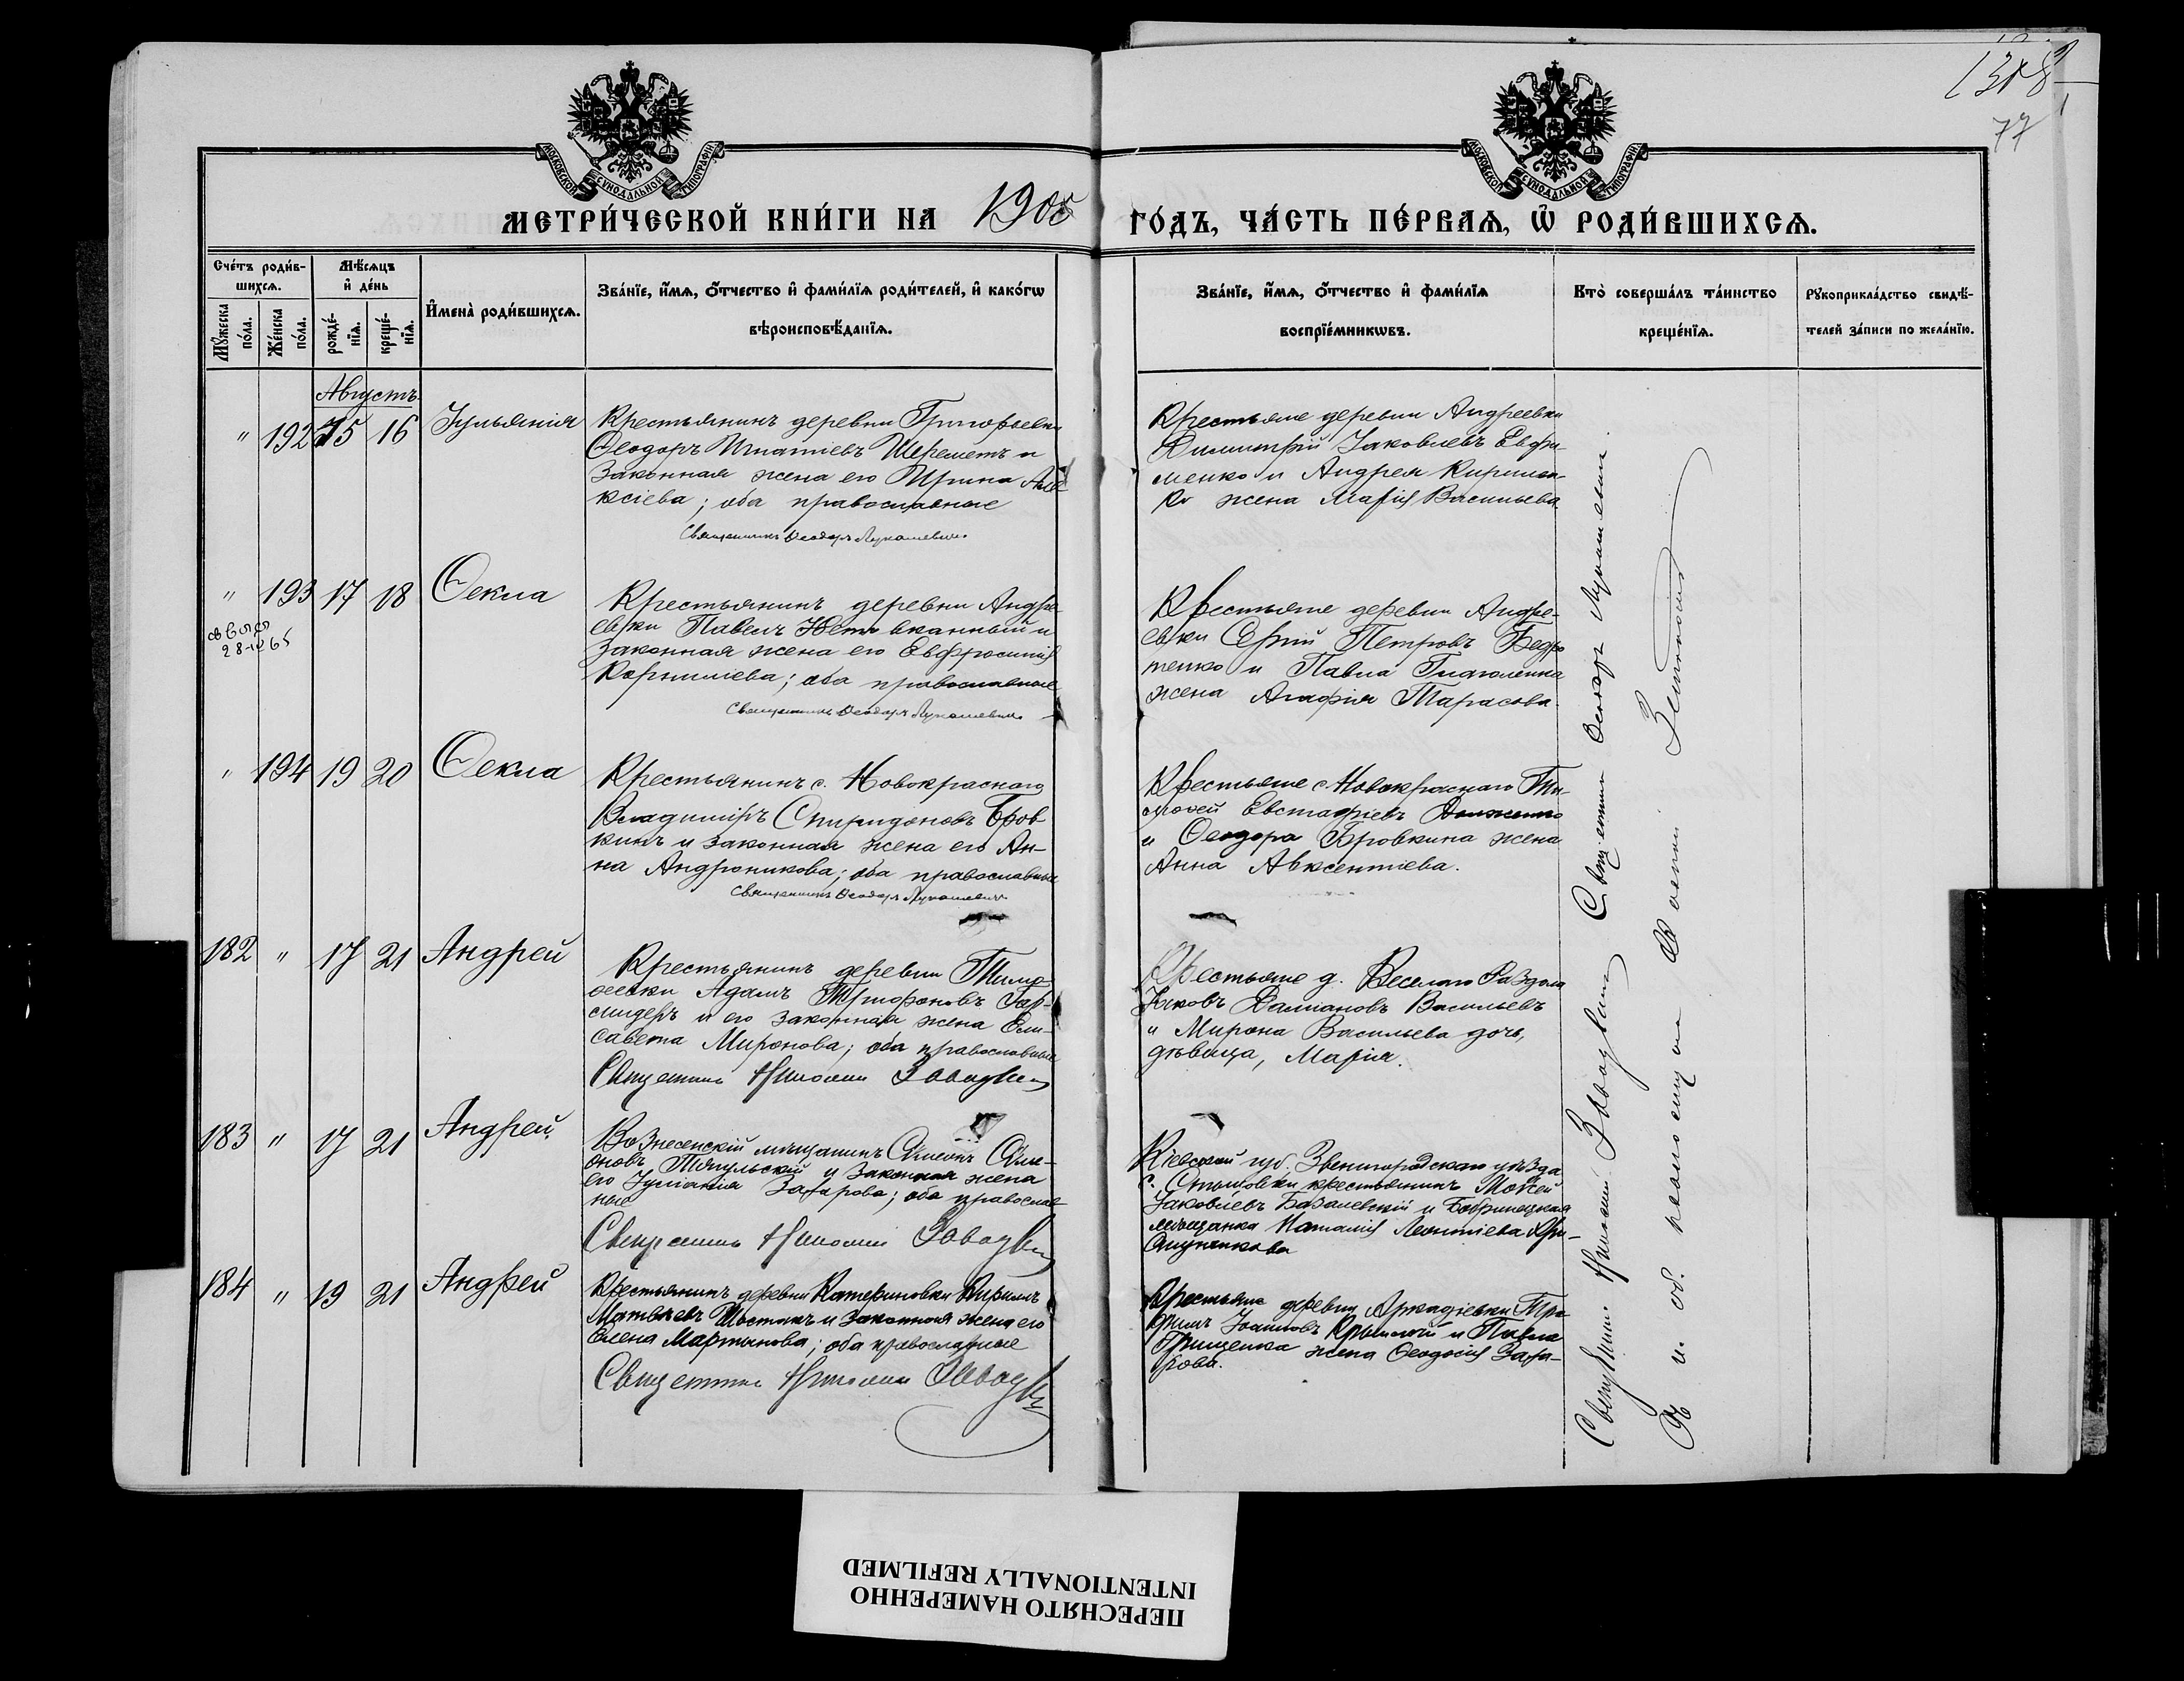 1318
77
МОСКОВСКОЙ СѴНОДАЛЬНОЙ ТИПОГРАФІИ
МОСКОВСКОЙ СѴНОДАЛЬНОЙ ТИПОГРАФІИ
МЕТРИ́ЧЕСКОЙ КНИ́ГИ НА 1905 ГО́ДЪ, ЧА́СТЬ ПЕ́РВАѦ, Ѡ҆ РОДИ́ВШИХСѦ.
Сче́тъ роди́в-
шихсѧ.
Мѣ́сѧцъ
и҆ де́нь
Мꙋ́жеска по́ла.
Же́нска по́ла.
рожде́-
нїѧ.
креще́-
нїѧ.
И҆мена̀ роди́вшихсѧ.
Зва́нїе, и҆́мѧ, ѻ҆́тчество и҆ фами́лїѧ роди́телей, и҆ како́гѡ
вѣроисповѣ́данїѧ.
Зва́нїе, и҆́мѧ, ѻ҆́тчество и҆ фами́лїѧ
воспрїе́мникѡвъ.
Кто̀ соверша́лъ та́инство
креще́нїѧ.
Рꙋкоприкла́дство свидѣ́-
телей за́писи по жела́нїю.
Августъ
" 192 15 16 Іульянія
Крестьянинъ деревни Григорьевки
Ѳеодоръ Игнатіевъ Шереметъ и
законная жена его Ирина Але-
ксіева; оба православные
Священникъ Ѳеодоръ Лукашевич
Крестьяне деревни Андреевки
Димитрій Іаковлевъ Евфи-
менко и Андрея Кирилен-
ко жена Марія Васильева
" 193 17 18 Ѳекла
28-IX 65
Крестьянинъ деревни Андре-
евки Павелъ и
законная жена его Евфросинія
Корниліева; оба православные
Священникъ Ѳеодоръ Лукашевич
Крестьяне деревни Андре-
евки Сергій Петровъ
и Павла
жена Агафія Тарасова.
" 194 19 20 Ѳекла
Крестьянинъ с. Новокраснаго
Владиміръ Спиридоновъ Бров-
кинъ и законная жена его Ан-
на Андроникова; оба православные
Священникъ Ѳеодоръ Лукашевич
Крестьяне с. Новокраснаго Ти-
моѳей Евстафіевъ Долженко
и Ѳеодора Бровкина жена
Анна Авксентіева.
182 " 17 21 Андрей
Крестьянинъ деревни Тимо-
ѳеевки Адамъ Трифоновъ Гар-
и его законная жена Ели-
савета Миронова; оба православные
Священникъ Николай
Крестьяне д. Веселаго Раздола
Іаковъ Даміановъ Васильевъ
и Мирона Васильева дочь,
дѣвица, Марія.
183 " 17 21 Андрей
Вознесенскій мѣщанинъ Сѵмеонъ Сѵме-
оновъ и законная жена
его Іуліанія Захарова; оба православ-
ные
Священникъ Николай
Кіевской губ. Звенигородскаго уѣзда
с. крестьянинъ Моѵсей
Іаковлевъ Базалевскій и Бобринецкая
мѣщанка Наталія Леонтіева
184 " 19 21 Андрей
Крестьянинъ деревни Катериновки Кириллъ
Матвѣевъ Шостакъ и законная жена его
Елена Мартынова; оба православные
Священникъ Николай
Крестьяне деревни Аркадіевки Тро-
фимъ Іоанновъ и Павла
Грищенка жена Ѳеодосія Заха-
рова.
Священникъ Ѳеодоръ Лукашевичъ
Священникъ Николай
ПЕРЕСНЯТО НАМЕРЕННО
INTENTIONALLY REFILMED